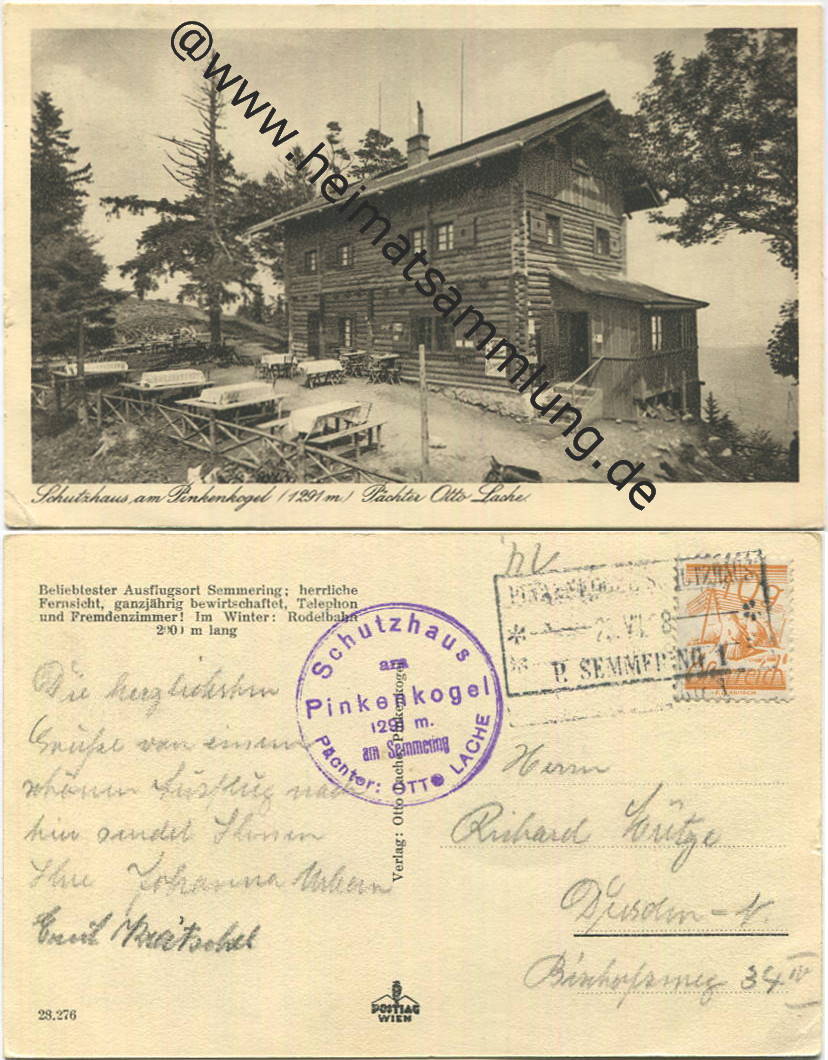 @www.heimatsammlung.de
Schutzhaus am Pinkenkogel (1291 m) Pächter Otto Lache.
Beliebtester Ausflugsort Semmering; herrliche
Fernsicht, ganzjährig bewirtschaftet, Telephon
und Fremdenzimmer! Im Winter: Rodelbahn
2000 m lang
Schutzhaus
am
Pinkenkogel
1291 m.
am Semmering
Pächter: OTTO LACHE
PINKENKOGEL SCHUTZHAUS
P. SEMMERING 1
Österreich
Die herzlichsten
Grüße von einem
schönen Ausflug nach
hier sendet Ihnen
Ihre Johanna
Emil
Verlag: Otto Lache, Pinkenkogel
Herrn
Richard
Dresden - N.
Bischofsweg 34 IV
28.276
POSTIAG
WIEN